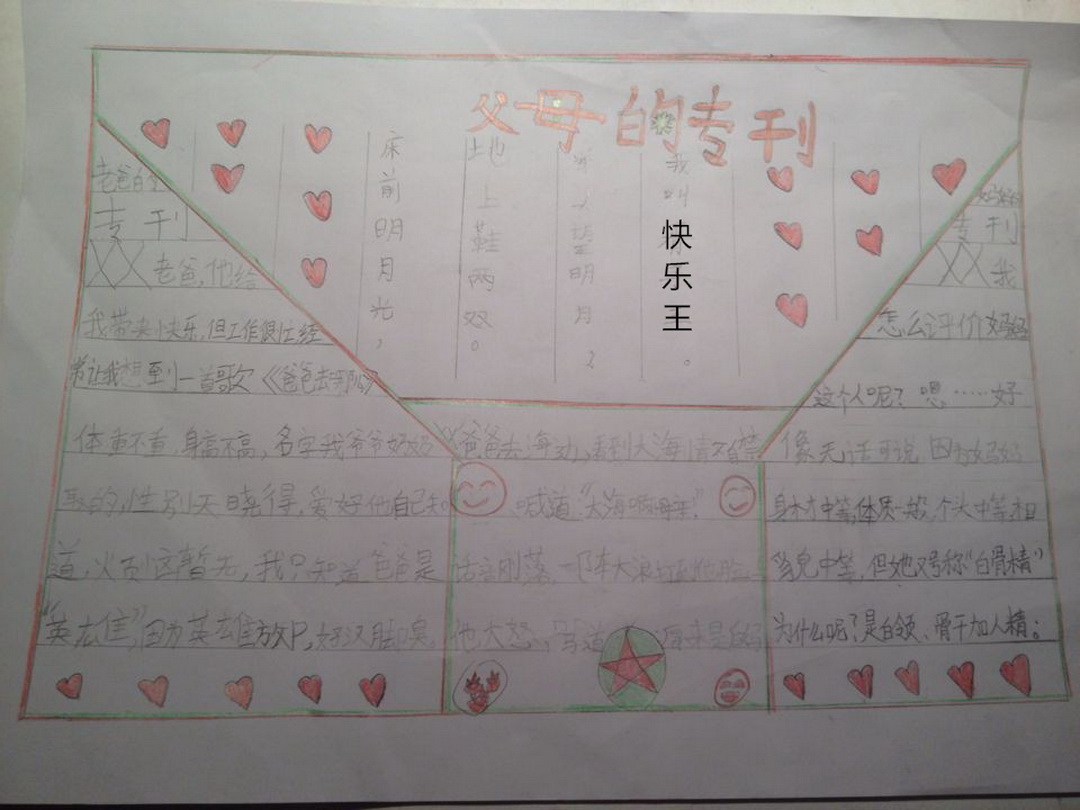 父母的专刊
床前明月光，
地上鞋两双。
望明月，
我叫
快乐王
。
老爸的
专刊
XX老爸，他给
我带来快乐，但工作很忙，经
常让我想到一首歌《爸爸去哪儿》
体重不重，身高不高，名字我爷爷奶奶
取的，性别天晓得，爱好他自己知
道，火引这暂无，我只知道爸爸是
"英左佳"，因为英雄放P，好汉脚臭
XX爸爸去海边，看到大海情不自禁
喊道"大海啊母亲！"
话音刚落，阵大浪
他大怒，骂道 原来是
妈妈
专刊
XX我
怎么评价妈妈
这个人呢？嗯……好
像无话可说，因为妈妈
身材中等，体质一般，个头中等，相
貌中等，但她又号称"白骨精"
为什么呢？是白领、骨干加人精。